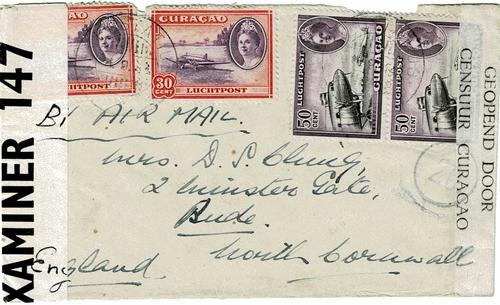 CURAÇAO
30 CENT LUCHTPOST
LUCHTPOST
50 CENT
LUCHTPOST
CURAÇAO
50 CENT
LUCHTPOST
CURAÇAO
EXAMINER 147
GEOPEND DOOR
CENSUUR CURAÇAO
By AIR MAIL.
Mrs. D. S.
2 Minster Gate,
Bude.
North Cornwall
England